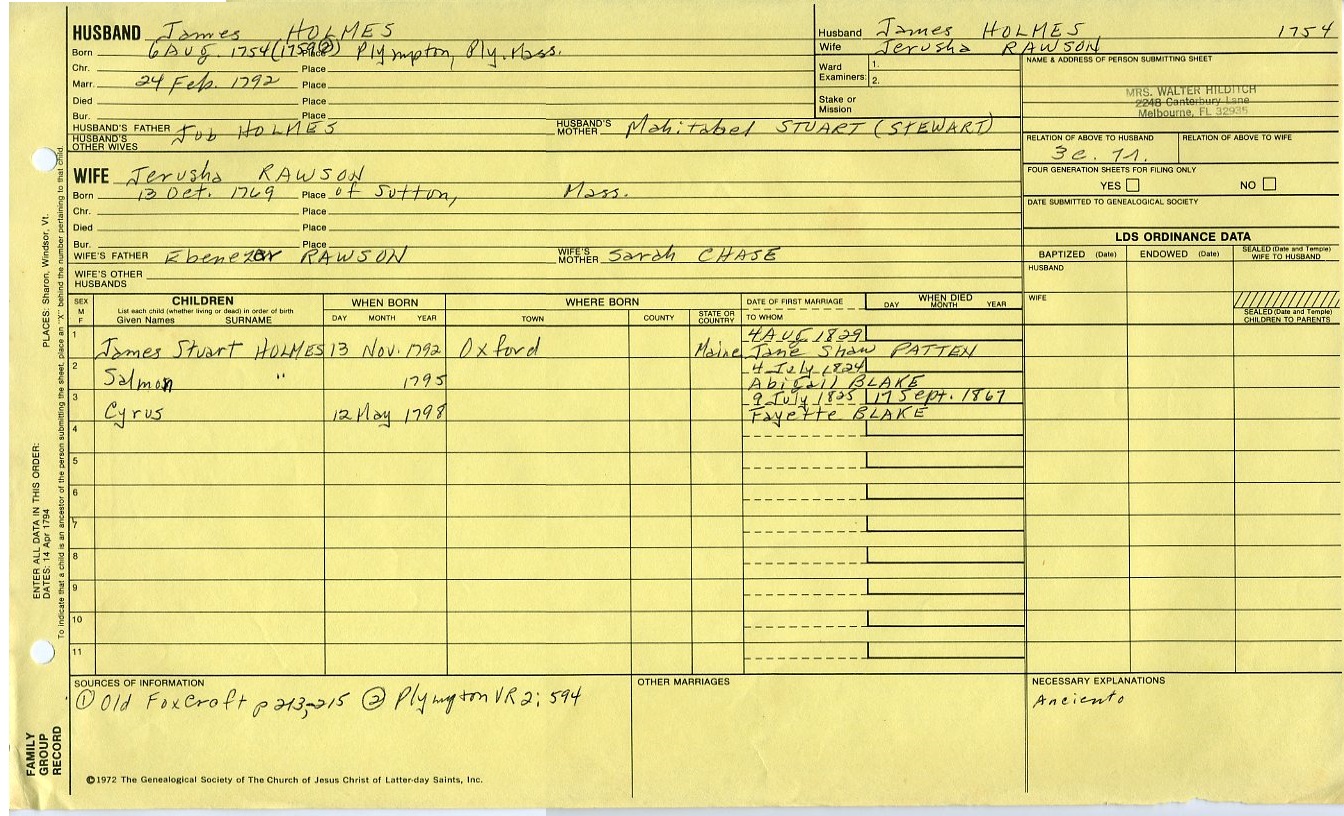 HUSBAND James HOLMES
Born 6 Aug. 1754 (1759②) Place Plympton, Ply. Mass.
Chr. Place
Marr. 24 Feb. 1792 Place
Died Place
Bur. Place
HUSBAND'S FATHER Job HOLMES HUSBAND'S MOTHER Mahitabel STUART (STEWART)
HUSBAND'S OTHER WIVES
WIFE Jerusha RAWSON
Born 13 Oct. 1769 Place of Sutton, Mass.
Chr. Place
Died Place
Bur. Place
WIFE'S FATHER Ebenezer RAWSON WIFE'S MOTHER Sarah CHASE
WIFE'S OTHER HUSBANDS
Husband James HOLMES 1754
Wife Jerusha RAWSON
Ward 1.
Examiners: 2.
Stake or Mission
NAME & ADDRESS OF PERSON SUBMITTING SHEET
MRS. WALTER HILDITCH
2248 Canterbury Lane
Melbourne, FL 32935
RELATION OF ABOVE TO HUSBAND RELATION OF ABOVE TO WIFE
3c.
FOUR GENERATION SHEETS FOR FILING ONLY
YES NO
DATE SUBMITTED TO GENEALOGICAL SOCIETY
LDS ORDINANCE DATA
BAPTIZED (Date) ENDOWED (Date) SEALED (Date and Temple) WIFE TO HUSBAND
HUSBAND
WIFE
SEALED (Date and Temple) CHILDREN TO PARENTS
SEX M F
CHILDREN
List each child (whether living or dead) in order of birth
Given Names SURNAME
WHEN BORN
DAY MONTH YEAR
WHERE BORN
TOWN COUNTY STATE OR COUNTRY
DATE OF FIRST MARRIAGE
TO WHOM
WHEN DIED
DAY MONTH YEAR
1 4 Aug 1829
James Stuart HOLMES 13 Nov. 1792 Oxford Maine Jane Shaw PATTEN
2 4 July 1824
Salmon " 1795 Abigail BLAKE
3 9 July 1825 17 Sept. 1867
Cyrus 12 May 1798 Fayette BLAKE
4
5
6
7
8
9
10
11
SOURCES OF INFORMATION
① Old Foxcroft p 213-215 ② Plympton VR 2: 594
OTHER MARRIAGES
NECESSARY EXPLANATIONS
Anciento
©1972 The Genealogical Society of The Church of Jesus Christ of Latter-day Saints, Inc.
FAMILY GROUP RECORD
ENTER ALL DATA IN THIS ORDER:
DATES: 14 Apr 1794 PLACES: Sharon, Windsor, Vt.
To indicate that a child is an ancestor of the person submitting the sheet, place an "X" behind the number pertaining to that child.